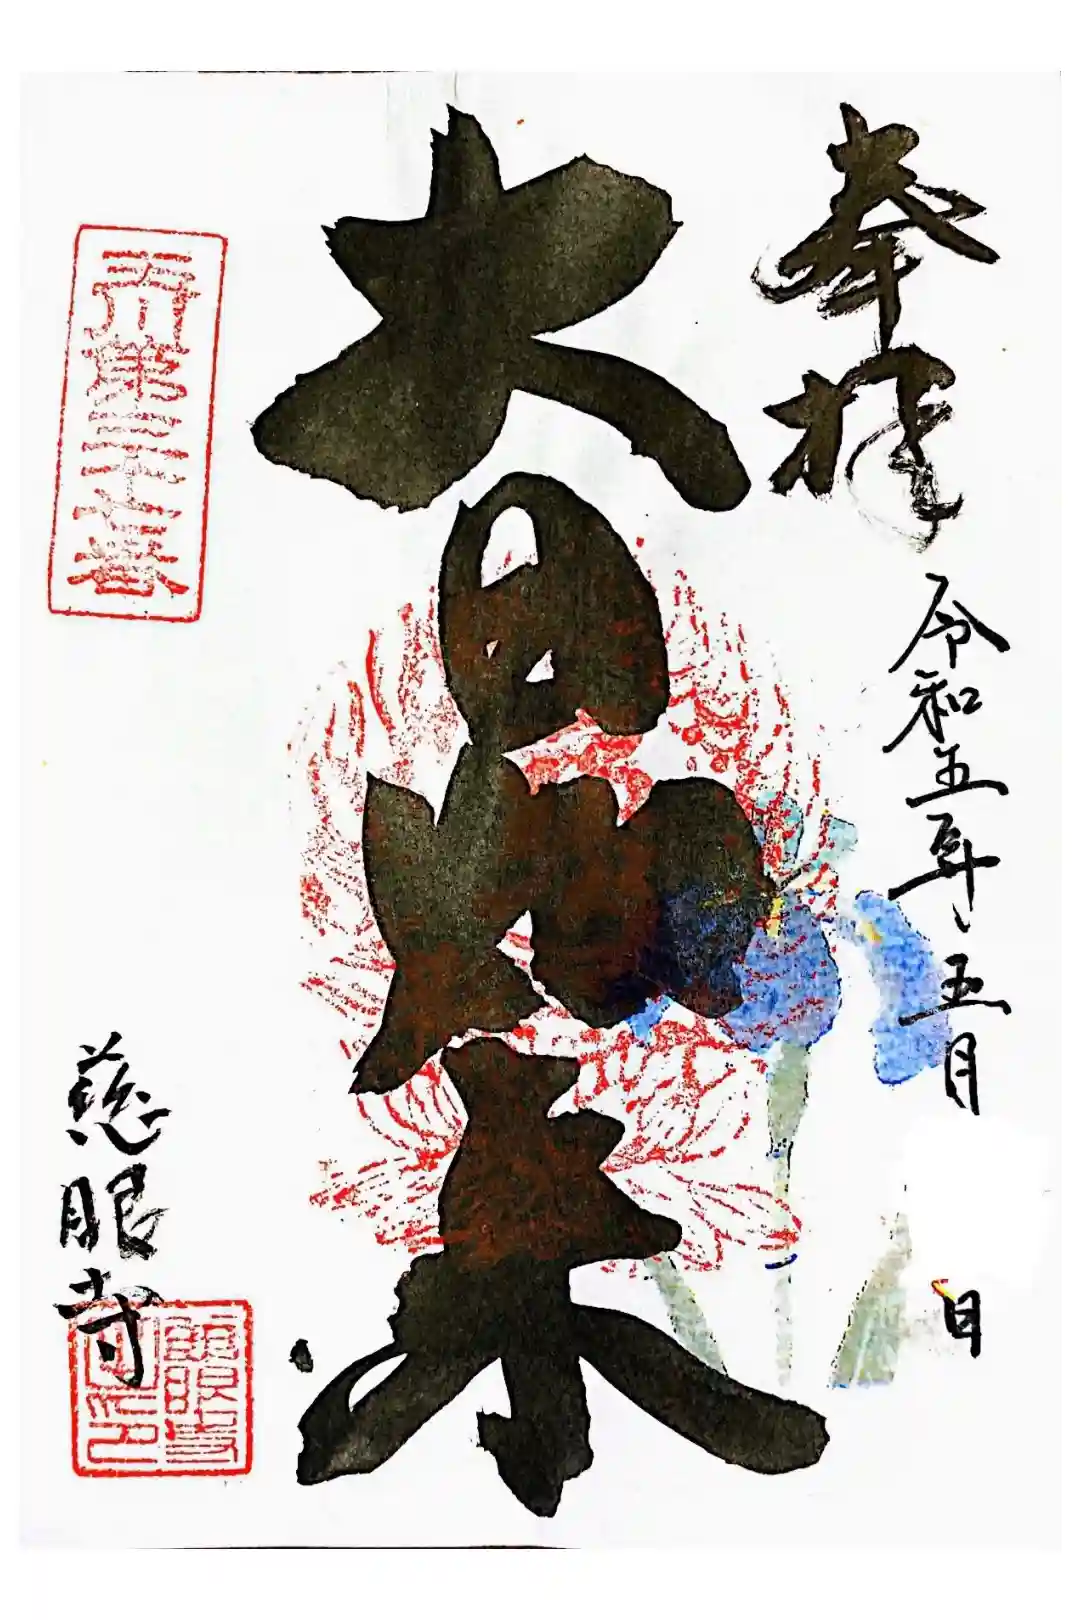 奉拝
令和五年五月 日
大日如来
玉川第三十七番
慈眼寺